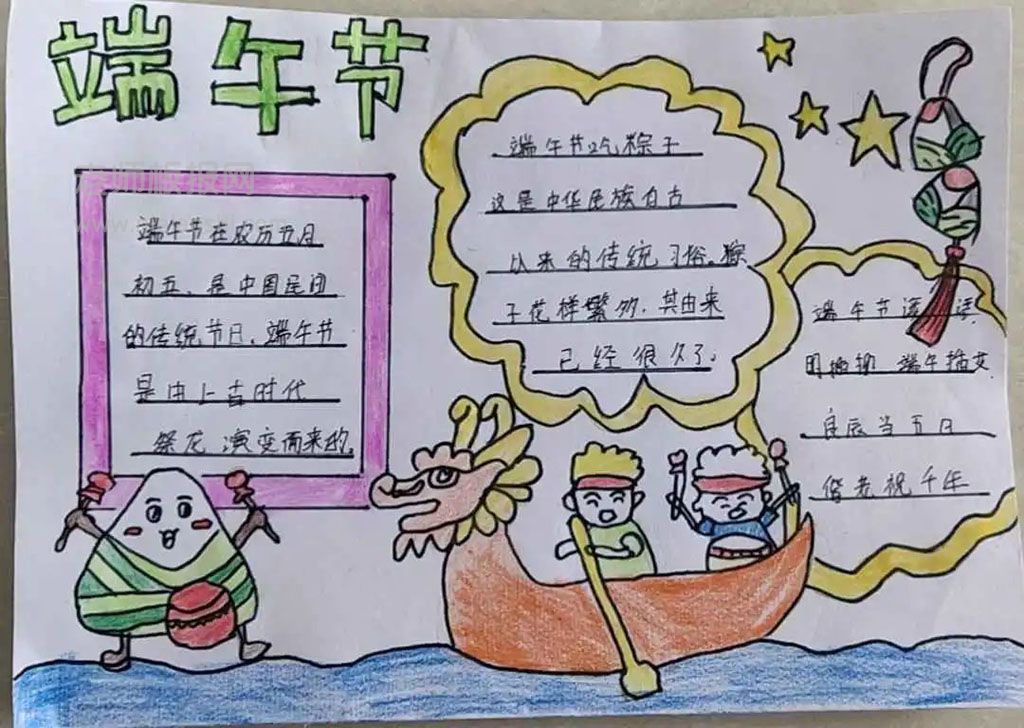 端午节
老师板报网
端午节在农历五月
初五、是中国民间
的传统节日、端午节
是由上古时代
祭龙 演变而来的
端午节吃粽子
这是中华民族自古
以来的传统习俗。粽
子花样繁多、其由来
已经很久了。
端午节
端午
良辰当五日
偕老祝千年